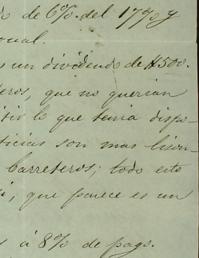 de 6%. del 1770 y
cual.
s un dividendo de $500.
eros, que no querian
itir lo que tenia dispo-
ticias son mas lison-
carreteros; todo esto
, que parece es un
s á 8% de pago.